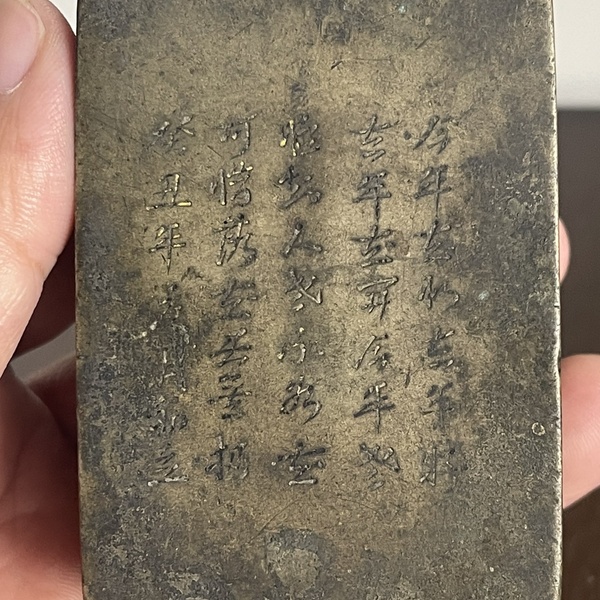 今年花似去年好
去年花今年老
始知人老不如花
可惜落花君莫掃
癸丑年